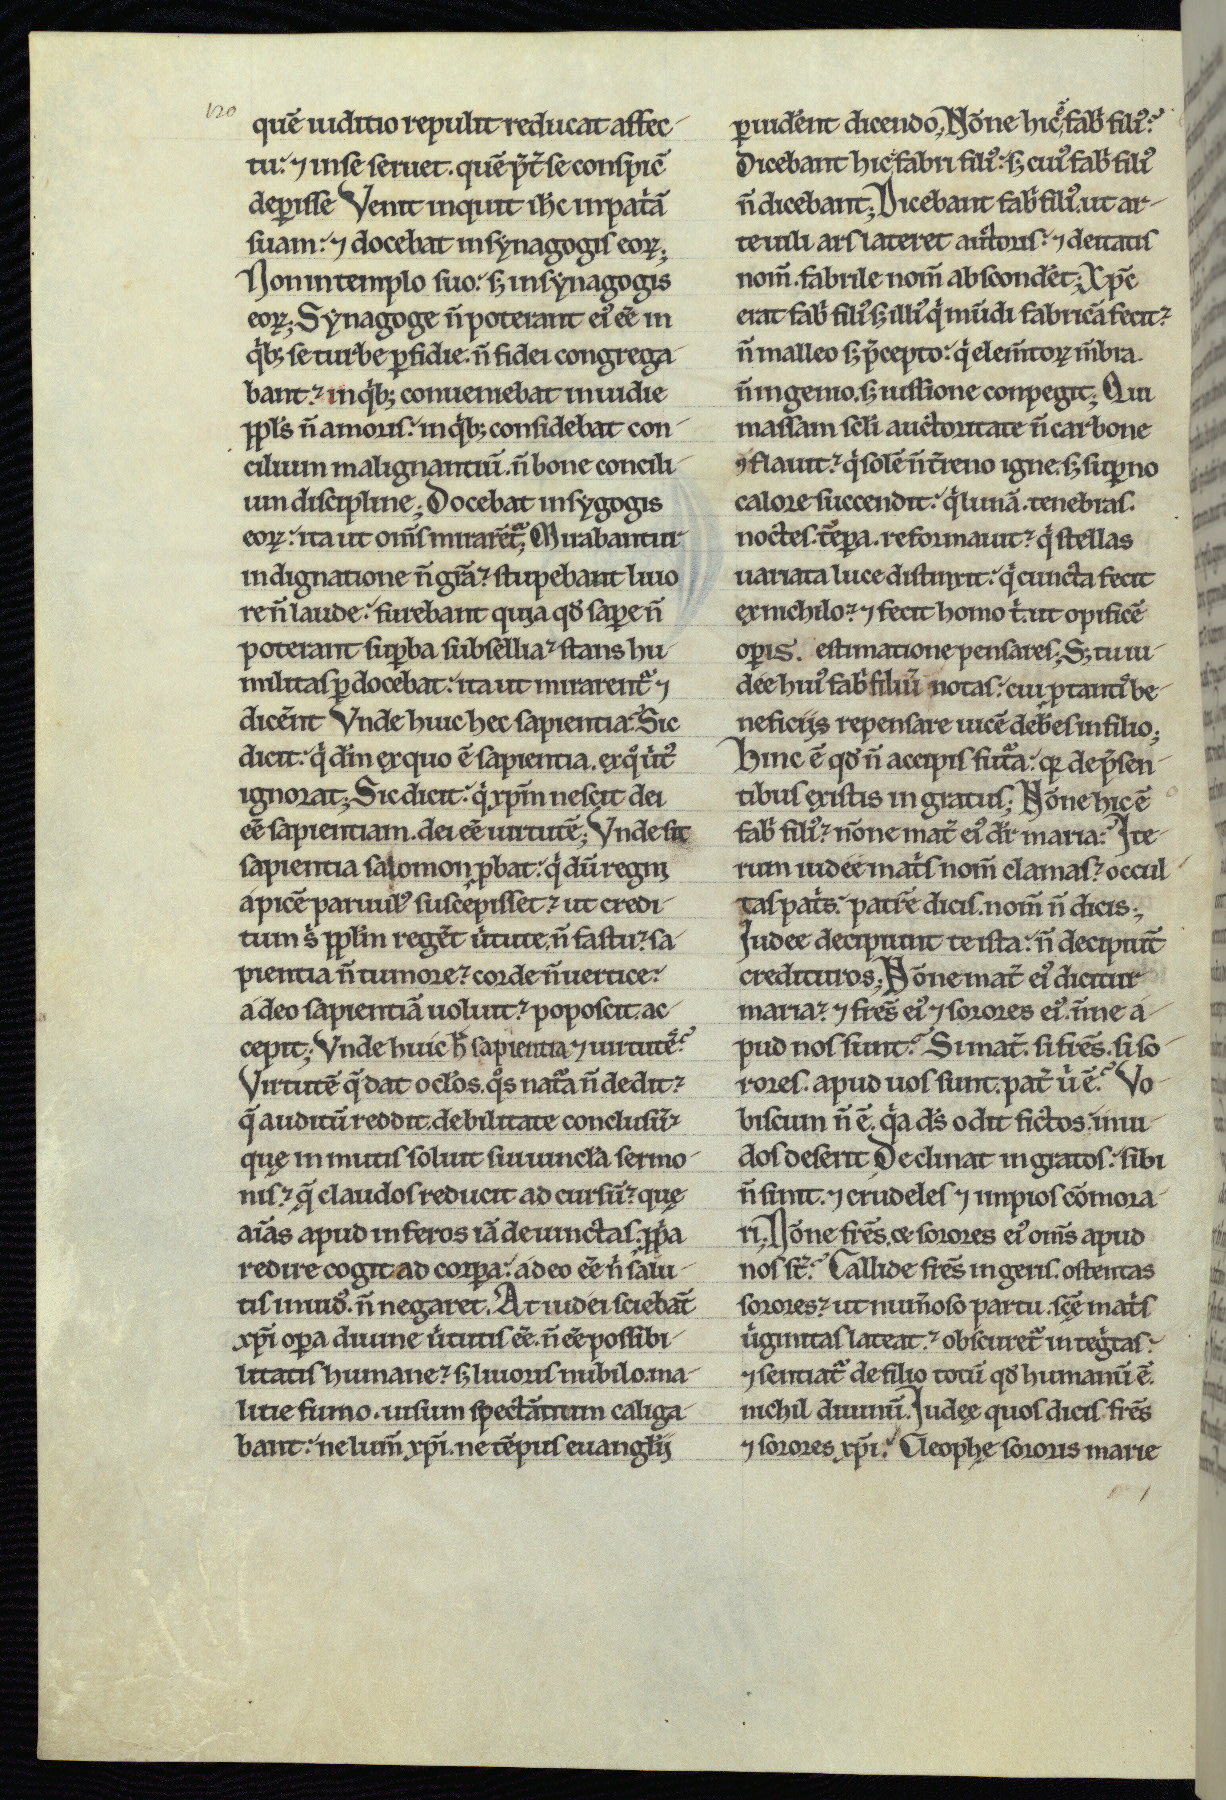 120
quē iuditio repulit reducat affec-
tu: ⁊ in se seruet. quē p̄t̄ se conspic̄
deꝑisse Venit inquit ih̄c in pat̓ā
suam: ⁊ docebat in synagogis eoꝝ;
Non in templo suo: sꝫ in synagogis
eoꝝ; Synagoge n̄ poterant ei᷒ eē̄ in
q̓bꝫ se turbe ꝑfidie. n̄ fidei congrega-
bant? in q̓bꝫ conueniebat inuidie
pp̄ls n̄ amoris. in q̓bꝫ considebat con-
cilium malignantiū. n̄ bone concili-
um discipline; Docebat in sygogis
eoꝝ: ita ut om̄s mirarēt᷑; Mirabantur
indignatione n̄ gr̄a? stupebant liuo
re n̄ laude: furebant quia qd̓ saꝑe n̄
poterant suꝑba subsellia? stans hu-
militas ꝑdocebat: ita ut mirarent᷑ ⁊
dicēnt Vnde huic hec sapientia? Sic
dicit: q̓ dm̄ ex quo ē sapientia. ex qͦ u̓t᷒
ignorat; Sic dicit: q̓ xp̄m nescit dei
eē sapientiam. dei eē uirtutē; Vnde sit
sapientia salomon ꝓbat: q̓ dū regni
apicē paruul᷒ suscepisset? ut credi-
tum s̓ pp̄lm regēt u̓tute, n̄ fastu? sa-
pientia n̄ tumore? corde n̄ uertice:
a deo sapientiā uoluit? poposcit. ac-
cepit; Vnde huic h̄ sapientia ⁊ uirtutē?
Virtutē q̄ dat oclōs. qͦs nat᷑a n̄ dedit?
q̄ auditū reddit. debilitate conclusū?
quę in mutis soluit sui uincl̄a sermo-
nis? q̄ claudos reducit ad cursū? quę
aīas apud inferos iā deuinctas. ꝓp̄a
redire cogit ad corꝑa: a deo eē n̓ salu-
tis inuid᷒. n̄ negaret. At iudei sciebāt
xp̄i oꝑa diuine u̓tutis eē. n̄ eē possibi-
litatis humane? sꝫ liuoris nubilo. ma-
litie fumo. uisum spectātium caliga-
bant: ne lum̄ xp̄i. ne tēpus euangl̄ij
ꝑuidēnt dicendo, Nōne hic ē fab̓ fili᷒?
Dicebant hic fabri fili᷒: sꝫ cui᷒ fab̓ fili᷒
n̄ dicebant; Dicebant fab̓ fili᷒. ut ar-
te uili ars lateret auct̓oris: ⁊ deitatis
nom̄. fabrile nom̄ abscondēt; Xp̄c
erat fab̓ fili᷒ sꝫ illi᷒ q̓ mūdi fabricā fecit?
n̄ malleo sꝫ p̄cepto: q̓ elem̄toꝝ m̄bra.
n̄ ingenio, sꝫ iussione conpegit; Qui
massam scl̄i auctoritate n̄ carbone
ꝯflauit? q̓ solē n̄ t̄reno igne. sꝫ suꝑno
calore succendit: q̓ lunā. tenebras.
noctes. tēꝑa. reformauit? q̓ stellas
uariata luce distinxit: q̓ cuncta fecit
ex nichilo? ⁊ fecit homo t̓. ut opificē
oꝑis. estimatione pensares; Sꝫ tu iu-
dee hui᷒ fab̓ filiū notas: cui ꝑ tanti᷒ be-
neficijs repensare uicē deb̄es in filio;
Hinc ē qd̓ n̄ accipis fut᷑a: qꝛ de p̄sen-
tibus existis ingratus; Nōne hic ē
fab̓ fili᷒? nōne mat̄ ei᷒ dr̄ maria? Ite-
rum iudee mat̓s nom̄ clamas? occul-
tas pat̓s: patrē dicis. nom̄ n̄ dicis;
Iudee decipiunt te ista: n̄ decipiūt
credituros; Nōne mat̄ ei᷒ dicitur
maria? ⁊ frēs ei᷒ ⁊ sorores ei᷒. n̄ne a-
pud nos sunt? Si mat̄. si frēs. si so-
rores. apud uos sunt. pat̄ u̓ ē? Vo-
biscum n̄ ē. q̓a ds̄ odit fictos. inui-
dos deserit Declinat ingratos: sibi
n̄ sinit. ⁊ crudeles ⁊ impios cōmora-
ri; Nōne frēs. ce sorores ei᷒ om̄s apud
nos st̄? Callide frēs ingeris. ostentas
sorores? ut num̄oso partu. scē mat̓s
u̓ginitas lateat? obscuret᷑ integ̓tas:
⁊ sentiat᷑ de filio totū qd̓ humanū ē.
nichil diuinū. Iudęe quos dicis frēs
⁊ sorores xp̄i: Cleophę sororis marie